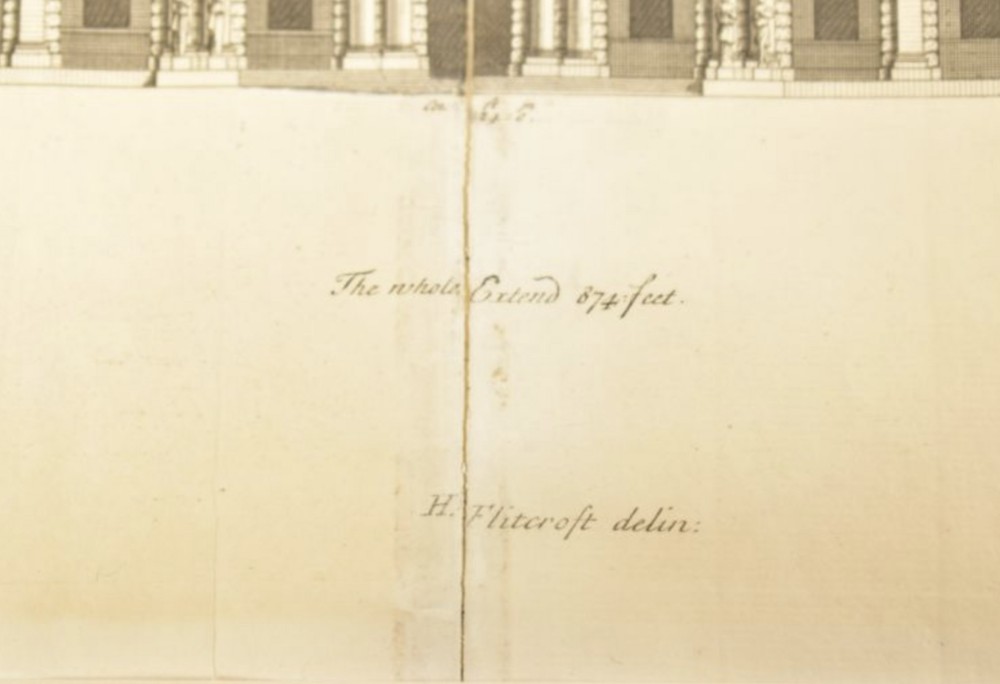 The whole Extend 874 feet.
H. Flitcroft delin: